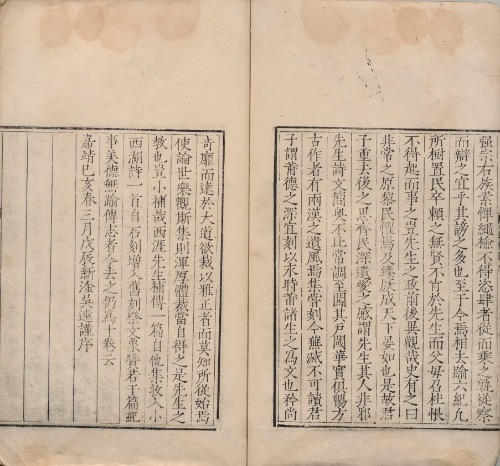 强宗右族素憚繩檢不得恣肆者從而乘之竟從察
而辯之宜乎其謗之多也至于今焉相去踰六紀九
所樹置民卒賴之無賢不肖於先生而父母召杜恨
不得起而事之豈先生之政前後異觀哉史有之曰
非常之原黎民懼焉及臻厥成天下晏如也是故君
子重去後之思齊民深遺愛之感謂先生其人非邪
先生詩文簡奧不止當調至闖其戶閾華實俱暢方
古作者有兩漢之遺風焉集嘗刻今蕪滅不可讀君
子謂莆德之深宜刻以永時莆諸生之為文也矜尚
奇靡而遠於大道欲裁以雅正者而莫知所從始焉
使諭世樂觀斯集則渾厚體裁當自得之是先生之
教也豈小補哉西涯先生補傳一篇自他集故入小
西湖詩一首自石刻增入舊刻祭文䇿若干篇紀
事美德無踰傳志者今去之仍為十卷云
嘉靖己亥春三月戊辰新淦吳逵謹序